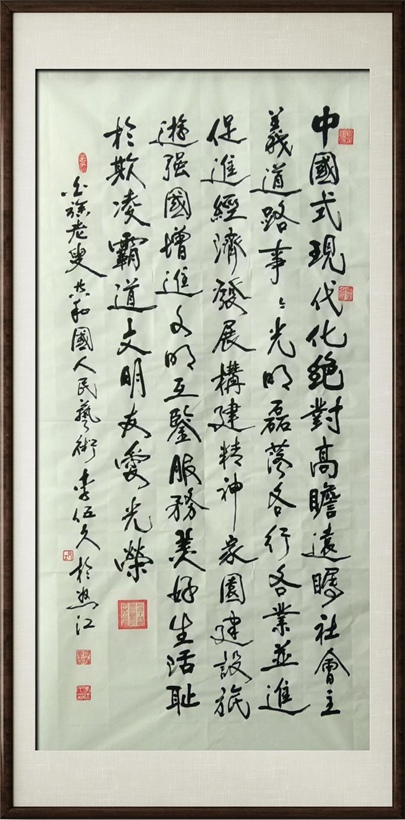 中國式現代化絕對高瞻遠矚社會主
義道路事々光明磊落各行各業並進
促進經濟發展構建精神家園建設旅
遊强國增進文明互鑒服務美好生活耻
於欺凌霸道文明友愛光榮
老叟共和國人民藝術李伍久於江